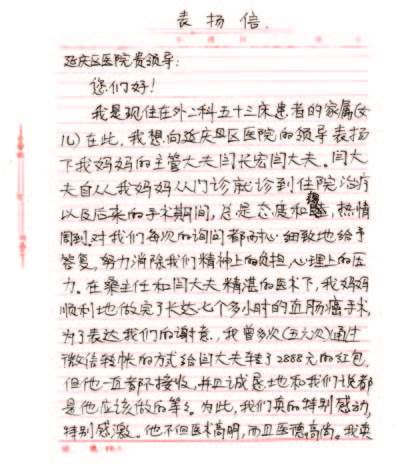 表扬信.
延庆区医院贵领导:
您们好!
我是现住在外二科五十三床患者的家属(女
儿)在此,我想向延庆县区医院的领导表扬
下我妈妈的主管大夫闫长宏闫大夫。闫大
夫自从我妈妈从门诊就诊到住院治疗
以及后来的手术期间,总是态度和蔼,热情
周到.对我们每次的询问都耐心细致地给予
答复,努力消除我们精神上的负担,心理上的压
力。在桑主任和闫大夫精湛的医术下,我妈妈
顺利地做完了长达七个多小时的直肠癌手术,
为了表达我们的谢意,我曾多次(五六次)通过
微信转帐的方式给闫大夫转了2888元的红包,
但他一直都不接收,并且诚恳地和我们说都
是他应该做的等。为此,我们真的特别感动,
特别感激。他不但医术高明,而且医德高尚。我真